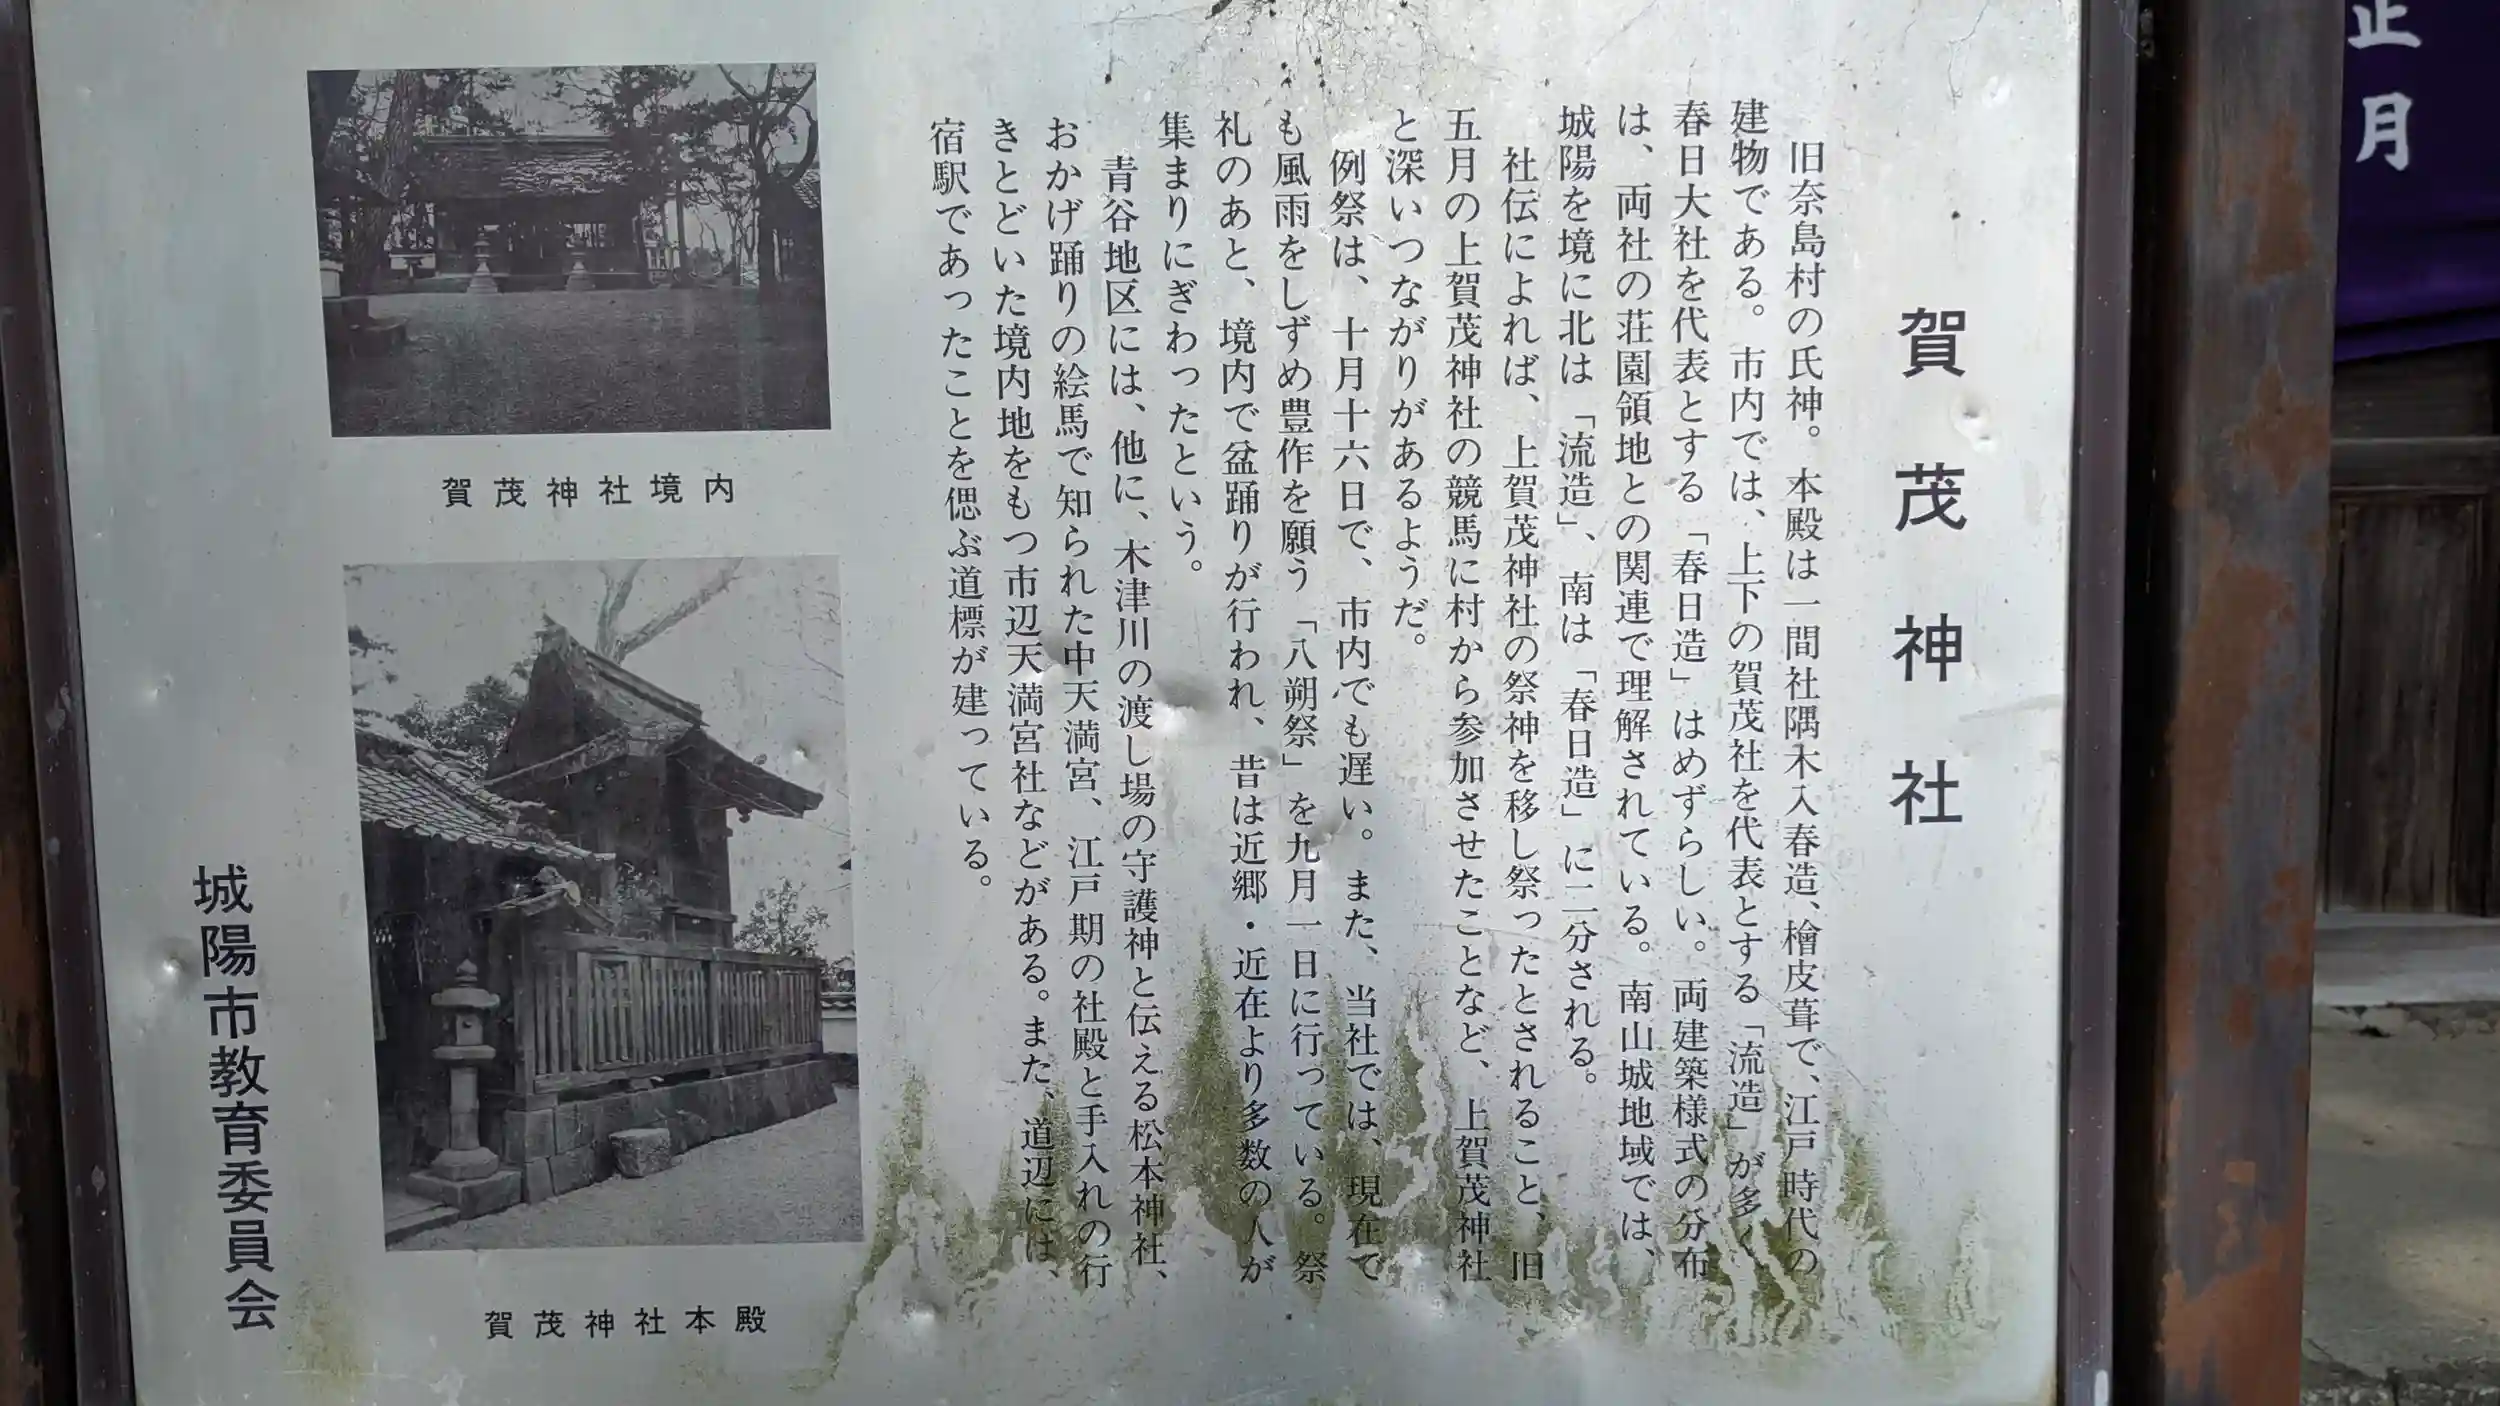 正月
賀茂神社
旧奈島村の氏神。本殿は一間社隅木入春造、檜皮葺で、江戸時代の
建物である。市内では、上下の賀茂社を代表とする「流造」が多く
春日大社を代表とする「春日造」はめずらしい。両建築様式の分布
は、両社の荘園領地との関連で理解されている。南山城地域では、
城陽を境に北は「流造」、南は「春日造」に二分される。
社伝によれば、上賀茂神社の祭神を移し祭ったとされること、旧
五月の上賀茂神社の競馬に村から参加させたことなど、上賀茂神社
と深いつながりがあるようだ。
例祭は、十月十六日で、市内でも遅い。また、当社では、現在で
も風雨をしずめ豊作を願う「八朔祭」を九月一日に行っている。祭
礼のあと、境内で盆踊りが行われ、昔は近郷・近在より多数の人が
集まりにぎわったという。
青谷地区には、他に、木津川の渡し場の守護神と伝える松本神社、
おかげ踊りの絵馬で知られた中天満宮、江戸期の社殿と手入れの行
きとどいた境内地をもつ市辺天満宮社などがある。また、道辺には、
宿駅であったことを偲ぶ道標が建っている。
賀茂神社境内
賀茂神社本殿
城陽市教育委員会